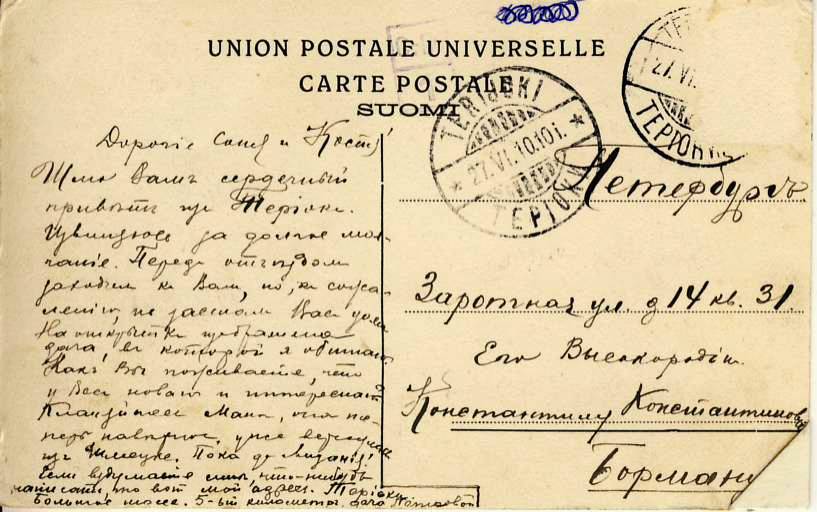 UNION POSTALE UNIVERSELLE
CARTE POSTALE
SUOMI
TERIJOKI
27.VI.10.10 i.
ТЕРІОКИ
27.VI.
ТЕРІОКИ
Дорогіе Саня и Костя
Шлю Вамъ сердечный
привѣтъ изъ Теріокъ.
Извиняюсь за долгое мол-
чаніе. Передъ отъѣздомъ
заходилъ къ Вамъ, но, къ сожа-
лѣнію, не засталъ Васъ дома
На открыткѣ изображена
дача, въ которой я обитаю
Какъ Вы поживаете, что
у Васъ новаго и интереснаго
Кланяйтесь Манѣ, она те-
перь навѣрное, уже вернулась
изъ Пока до свиданія!
Если вздумаете мнѣ, что-нибудь
написать, то вот мой адресъ. Теріоки
Большое шоссе. 5-ый километръ дача
Петербургъ
Заротная ул. д 14 кв. 31.
Его Высокородію
Константину Константиновичу
Борману